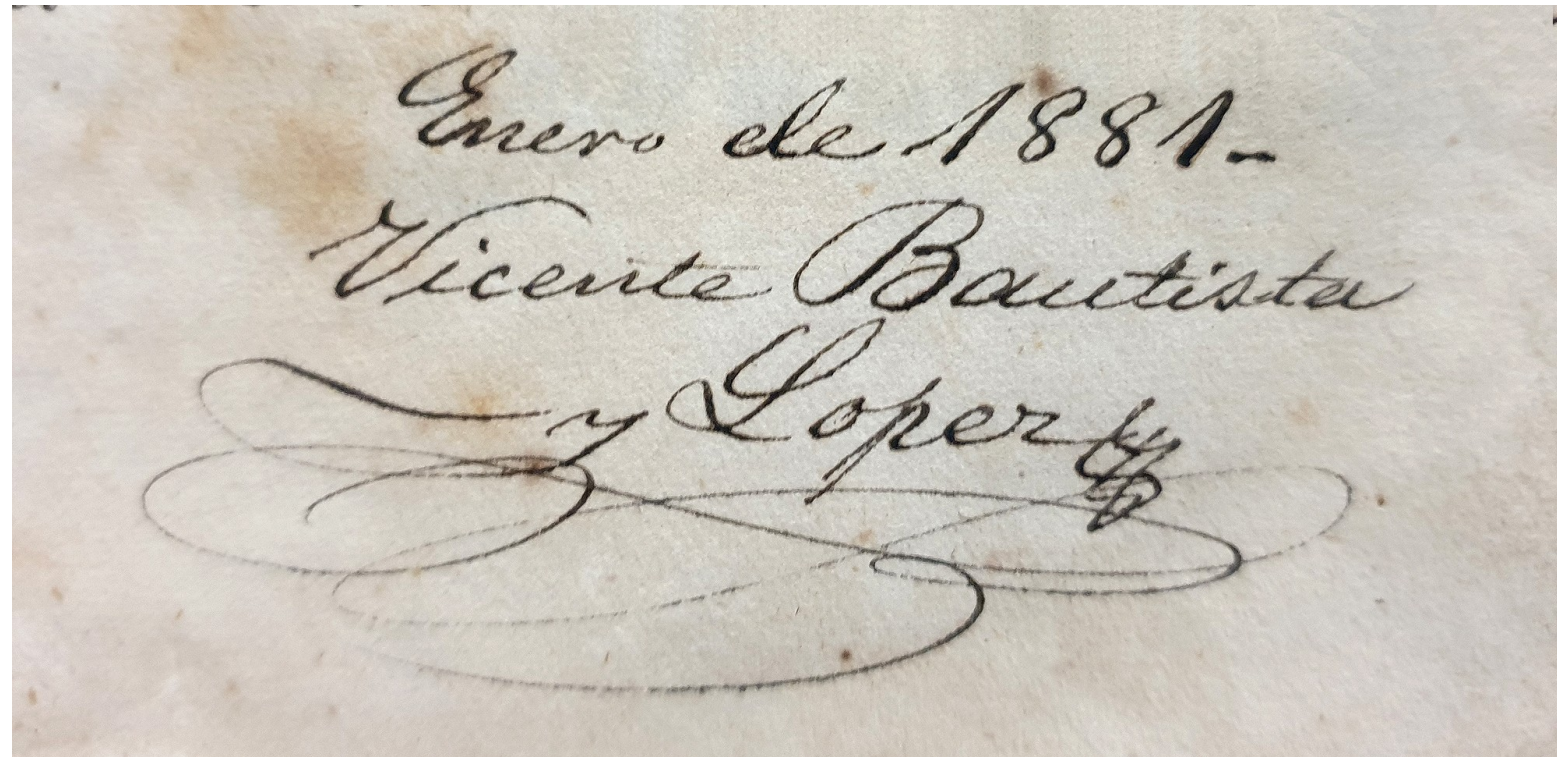 Enero de 1881-
Vicente Bautista
y Loperz